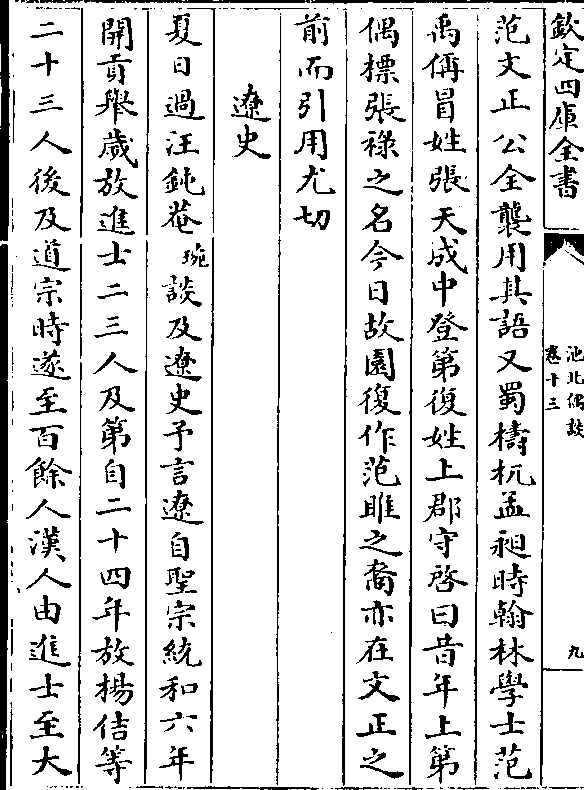 欽定四庫全書
池北偶談
卷十三
九
范文正公全襲用其語又蜀檮杌孟昶時翰林學士范
禹偁冒姓張天成中登第復姓上郡守啓曰昔年上第
偶標張祿之名今日故園復作范睢之裔亦在文正之
前而引用尤切
遼史
夏日過汪鈍菴琬談及遼史予言遼自聖宗統和六年
開貢舉歲放進士二三人及第自二十四年放楊佶等
二十三人後及道宗時遂至百餘人漢人由進士至大